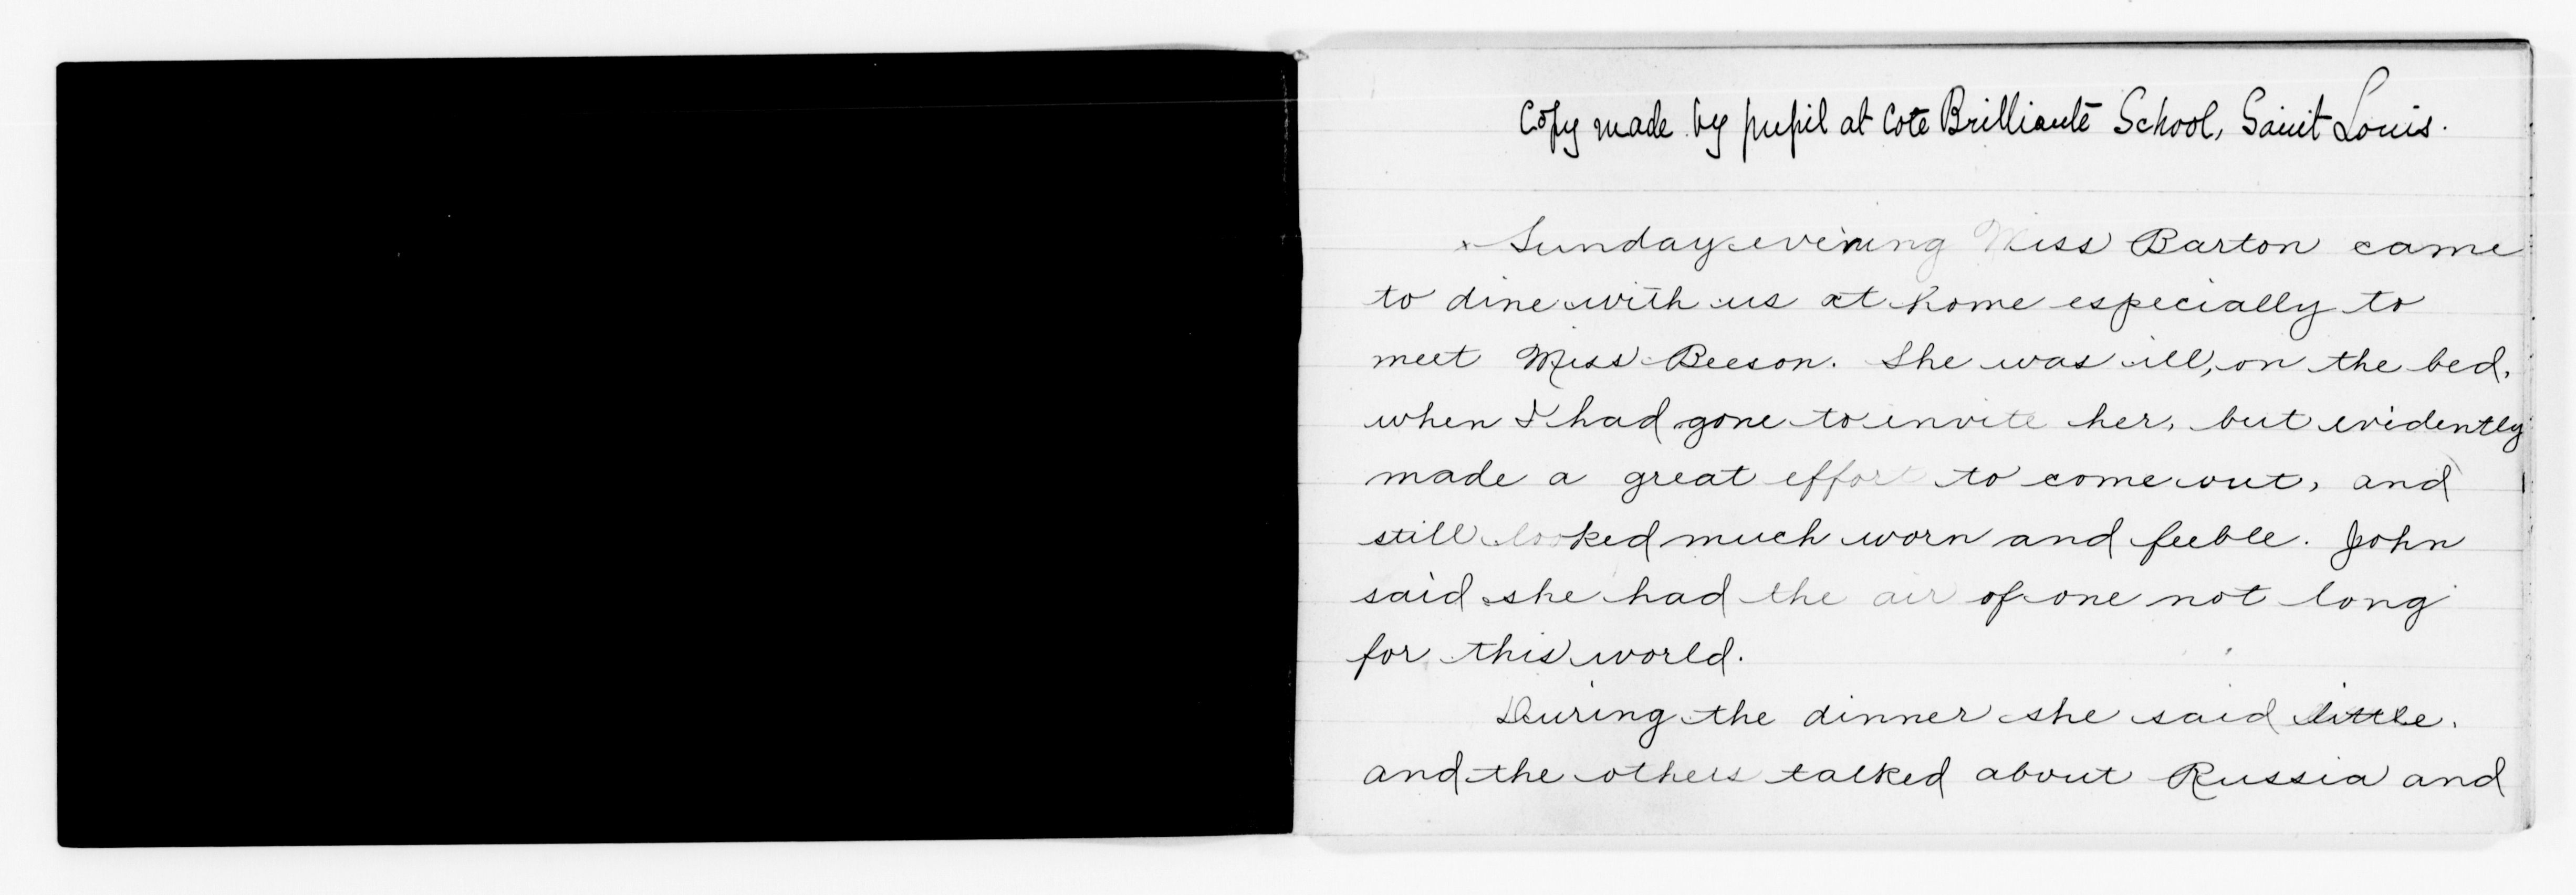 Copy made by pupil at Cote Brilliante School, Saint Louis.
Sunday evening Miss Barton came
to dine with us at home especially to
meet Miss Beeson. She was ill, on the bed,
when I had gone to invite her, but evidently
made a great effort to come out, and
still looked much worn and feeble. John
said she had the air of one not long
for this world.
During the dinner she said little.
and the others talked about Russia and